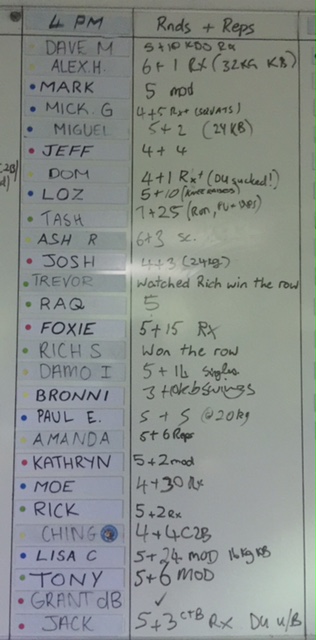 4 PM Rnds + Reps
DAVE M 5+10 KBS Rx
ALEX.H. 6+1 Rx (32KG KB)
MARK 5 mod
MICK. G 4+5 Rx+ (SQUATS)
MIGUEL 5+2 (24KB)
JEFF 4+4
DOM 4+1 Rx+ (DU sucked!)
LOZ 5+10 (KNEE RAISES)
TASH 7+25 (Run,
ASH R 6+3 sc.
JOSH 4+3 (24kg)
TREVOR watched Rich win the row
RAQ 5
FOXIE 5+15 Rx
RICH S Won the row
DAMO I 5+14 singles
BRONNI 3+10kbswings
PAUL E. 5+5 @20kg
AMANDA 5+6 Reps
KATHRYN 5+2 mod
MOE 4+30 Rx
RICK 5+2 Rx
CHING 4+4 C2B
LISA C 5+24 MOD 16kg KB
TONY 5+6 MOD
GRANT dB ✓
JACK 5+3 CTB Rx DU U/B